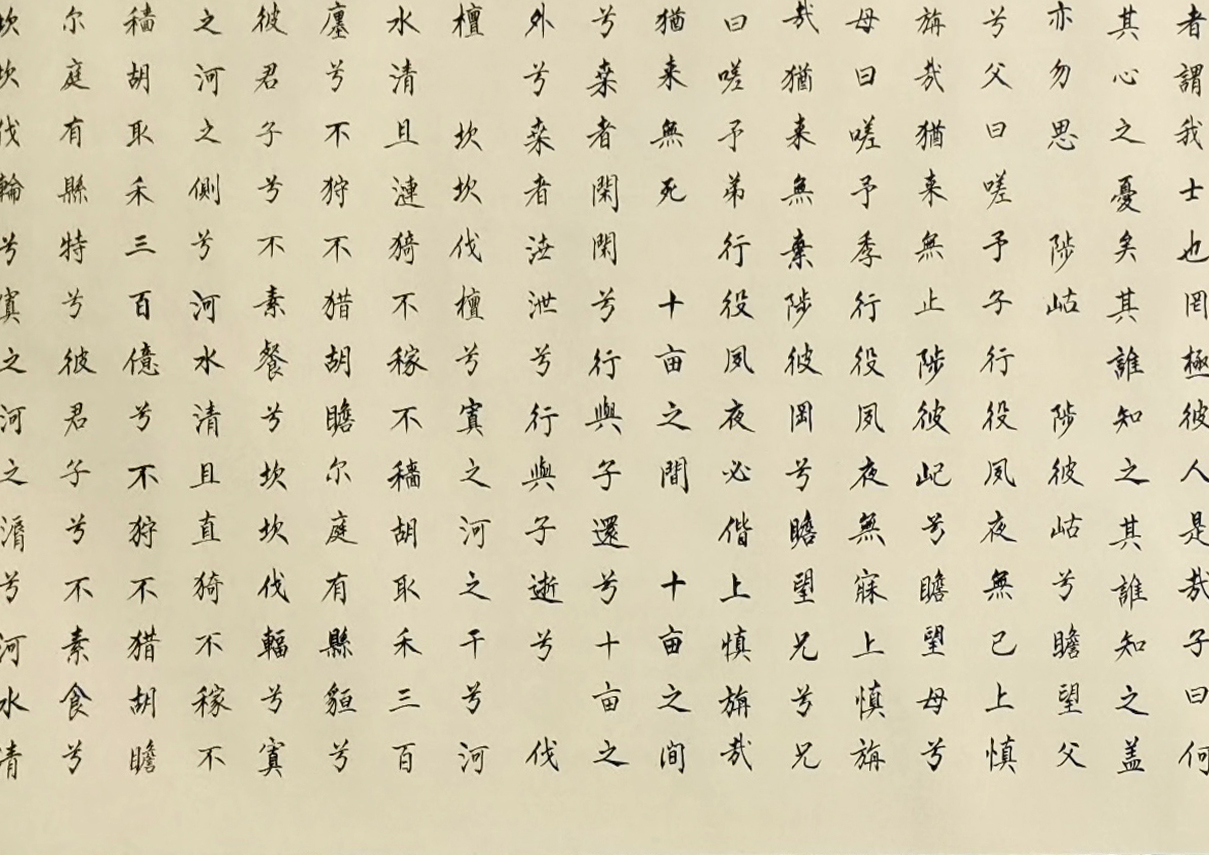 者謂我士也罔極彼人是哉子曰何
其心之憂矣其誰知之其誰知之盖
亦勿思 陟岵 陟彼岵兮瞻望父
兮父曰嗟予子行役夙夜無已上慎
旃哉猶来無止陟彼屺兮瞻望母兮
母曰嗟予季行役夙夜無寐上慎旃
哉猶来無棄陟彼岡兮瞻望兄兮兄
曰嗟予弟行役夙夜必偕上慎旃哉
猶来無死 十亩之間 十亩之间
兮桒者閑閑兮行與子還兮十亩之
外兮桒者泄泄兮行與子逝兮 伐
檀 坎坎伐檀兮寘之河之干兮河
水清且漣猗不稼不穡胡取禾三百
廛兮不狩不猎胡瞻尔庭有縣貆兮
彼君子兮不素餐兮坎坎伐輻兮寘
之河之側兮河水清且直猗不稼不
穡胡取禾三百億兮不狩不猎胡瞻
尔庭有縣特兮彼君子兮不素食兮
坎坎伐輪兮寘之河之漘兮河水清